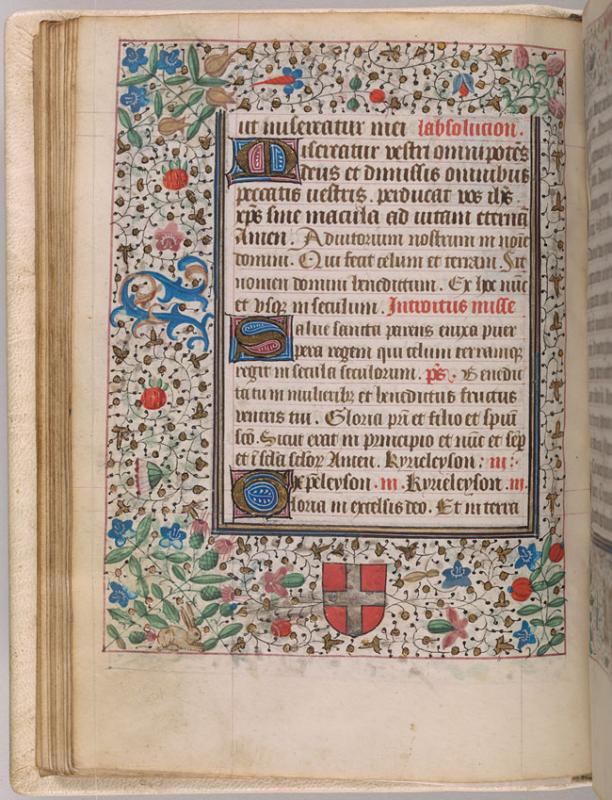 ut misereatur mei labsolucion.
Misereatur vestri omnipotēs
deus et dimissis omnibus
peccatis vestris. perducat vos ihs̄
xp̄s sine macula ad vitam eternā
Amen. Adiutorium nostrum in noīe
domini. Qui fecit celum et terram. Sit
nomen domini benedictum. Ex hoc nūc
et vsq̄ in seculum. Introitus misse
Salue sancta parens enixa puer
pera regem qui celum terramq̄
regit in secula seculorum. ps̄. Benedic
ta tu in mulieribȝ et benedictus fructus
ventris tui. Gloria pr̄i et filio et spūi
scō. Sicut erat in principio et nūc et sēp
et ī sc̄la sc̄lor̄ Amen. Kyrieleyson: iii:
Xp̄eleyson. iii. Kyrieleyson. iii.
Gloria in excelsis deo. Et in terra